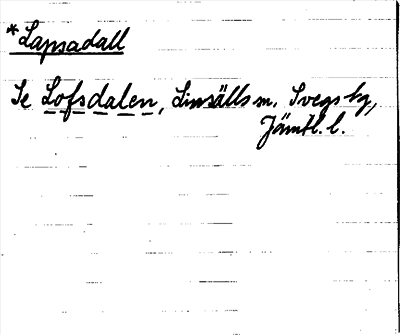 *Lapsadall
Se Lofsdalen, Linsälls sn. Svegs tg,
Jämtl. l.